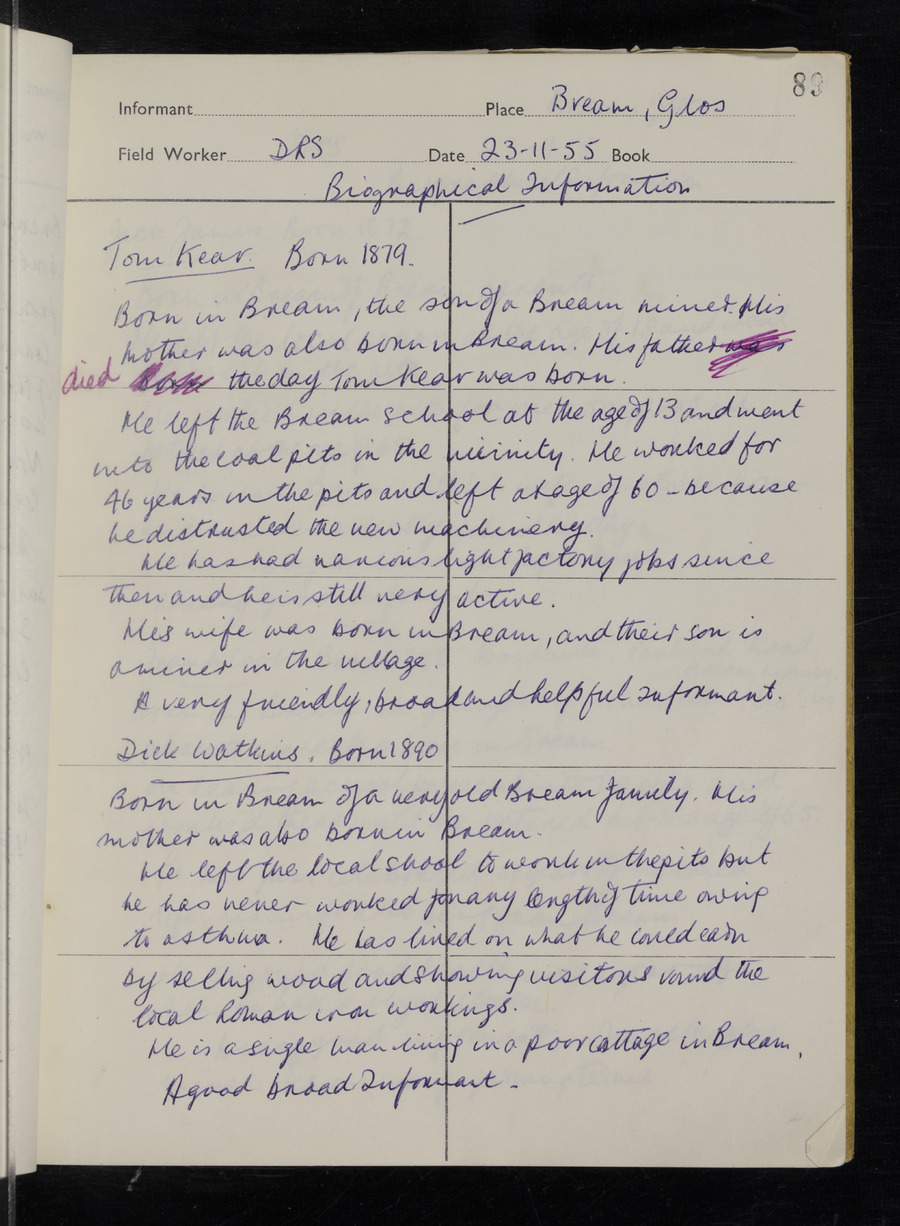 89
Informant Place Bream, Glos
Field Worker DRS Date 23-11-55 Book
Biographical Information
Tom Kear. Born 1879.
Born in Bream, the son of a Bream miner. His
mother was also born in Bream. His father was
died born the day Tom Kear was born.
He left the Bream School at the age of 13 and went
into the coal pits in the vicinity. He worked for
46 years in the pits and left at age of 60 - because
he distrusted the new machinery.
He has had various light factory jobs since
then and he is still very active.
His wife was born in Bream, and their son is
a miner in the village.
A very friendly, broad and helpful informant.
Dick Watkins. Born 1890
Born in Bream of a very old Bream family. His
mother was also born in Bream.
He left the local shool to work in the pits but
he has never worked for any length of time owing
to asthma. He has lived on what he could earn
by selling wood and showing visitors round the
local Roman iron workings.
He is a single man living in a poor cottage in Bream.
A good broad Informant -